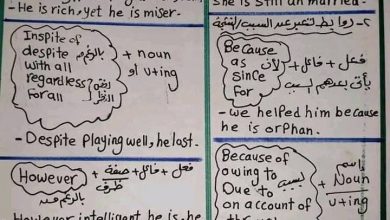 - He is rich, yet he is miser.
Inspite of
despite
with all
regardless
for all
بالرغم
+ noun
او v+ing
- Despite playing well, he lost.
However + صفة + فاعل + فعل
ظرف
However intelligent he is, he
she is still an married.
٢- روابط تعبر عن السبب
Because
as
since
for
لأن
+ فاعل + فعل
يأتى بعدهم سبب
- we helped him because
he is orphan.
Because of
owing to
Due to
on account of
بسبب
+ اسم
Noun
v+ing